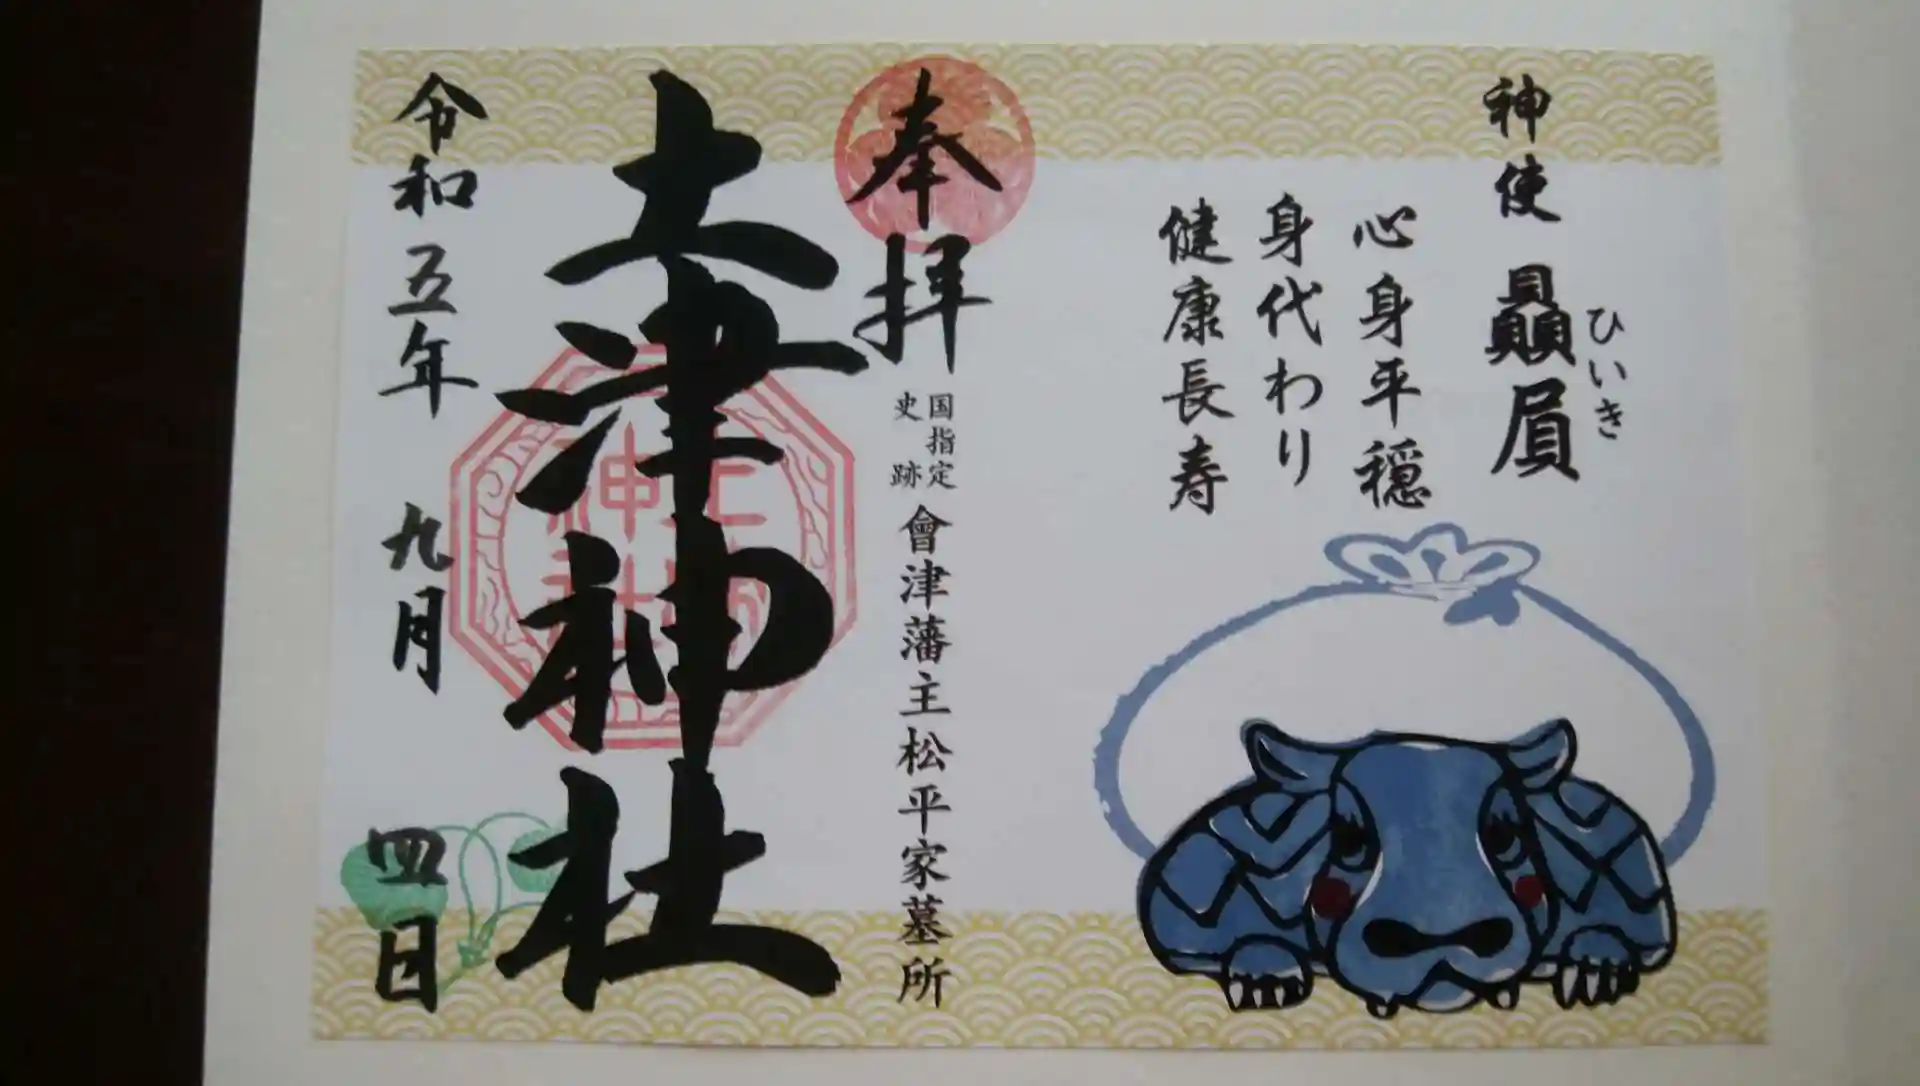 神使 贔屓
ひいき
心身平穏
身代わり
健康長寿
奉拝
国指定
史跡
會津藩主松平家墓所
土津神社
令和五年 九月 四日